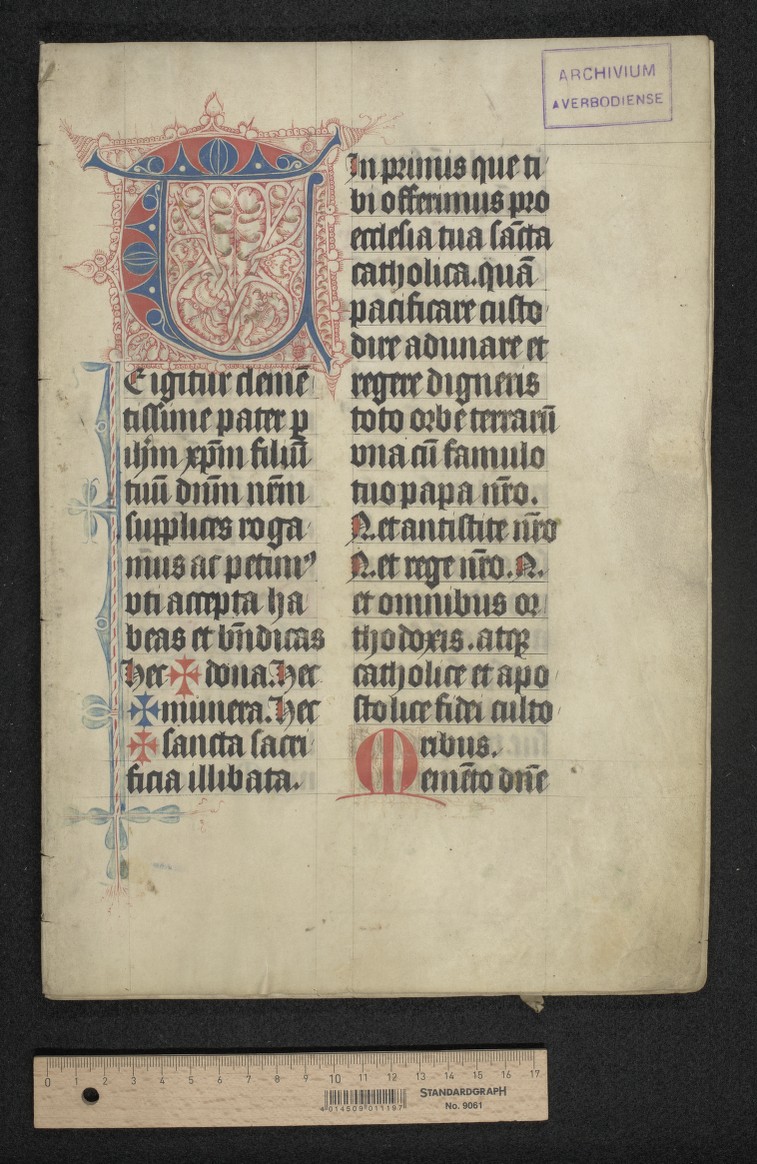 ARCHIVIUM
AVERBODIENSE
T
E igitur clemē
tissime pater p̲
ih̄m xp̄m filiū
tuū dn̄m nr̄m
supplices roga
mus ac petimꝰ
vti accepta ha
beas et bn̄dicas
Hec ✠ dona. Hec
✠ munera. Hec
✠ sancta sacri
ficia illibata.
In primis que ti
bi offerimus pro
ecclesia tua sāc̄ta
catholica. quā
pacificare custo
dire adunare et
regere digneris
toto orbe terrarū
vna cū famulo
tuo papa nr̄o.
N. et antistite nr̄o
N. et rege nr̄o. N.
et omnibus or
thodoxis. atqꝫ
catholice et apo
stolice fidei culto
ribus.
Memēto dn̄e
0 1 2 3 4 5 6 7 8 9 10 11 12 13 14 15 16 17
4 014509 011197
STANDARDGRAPH
No. 9061